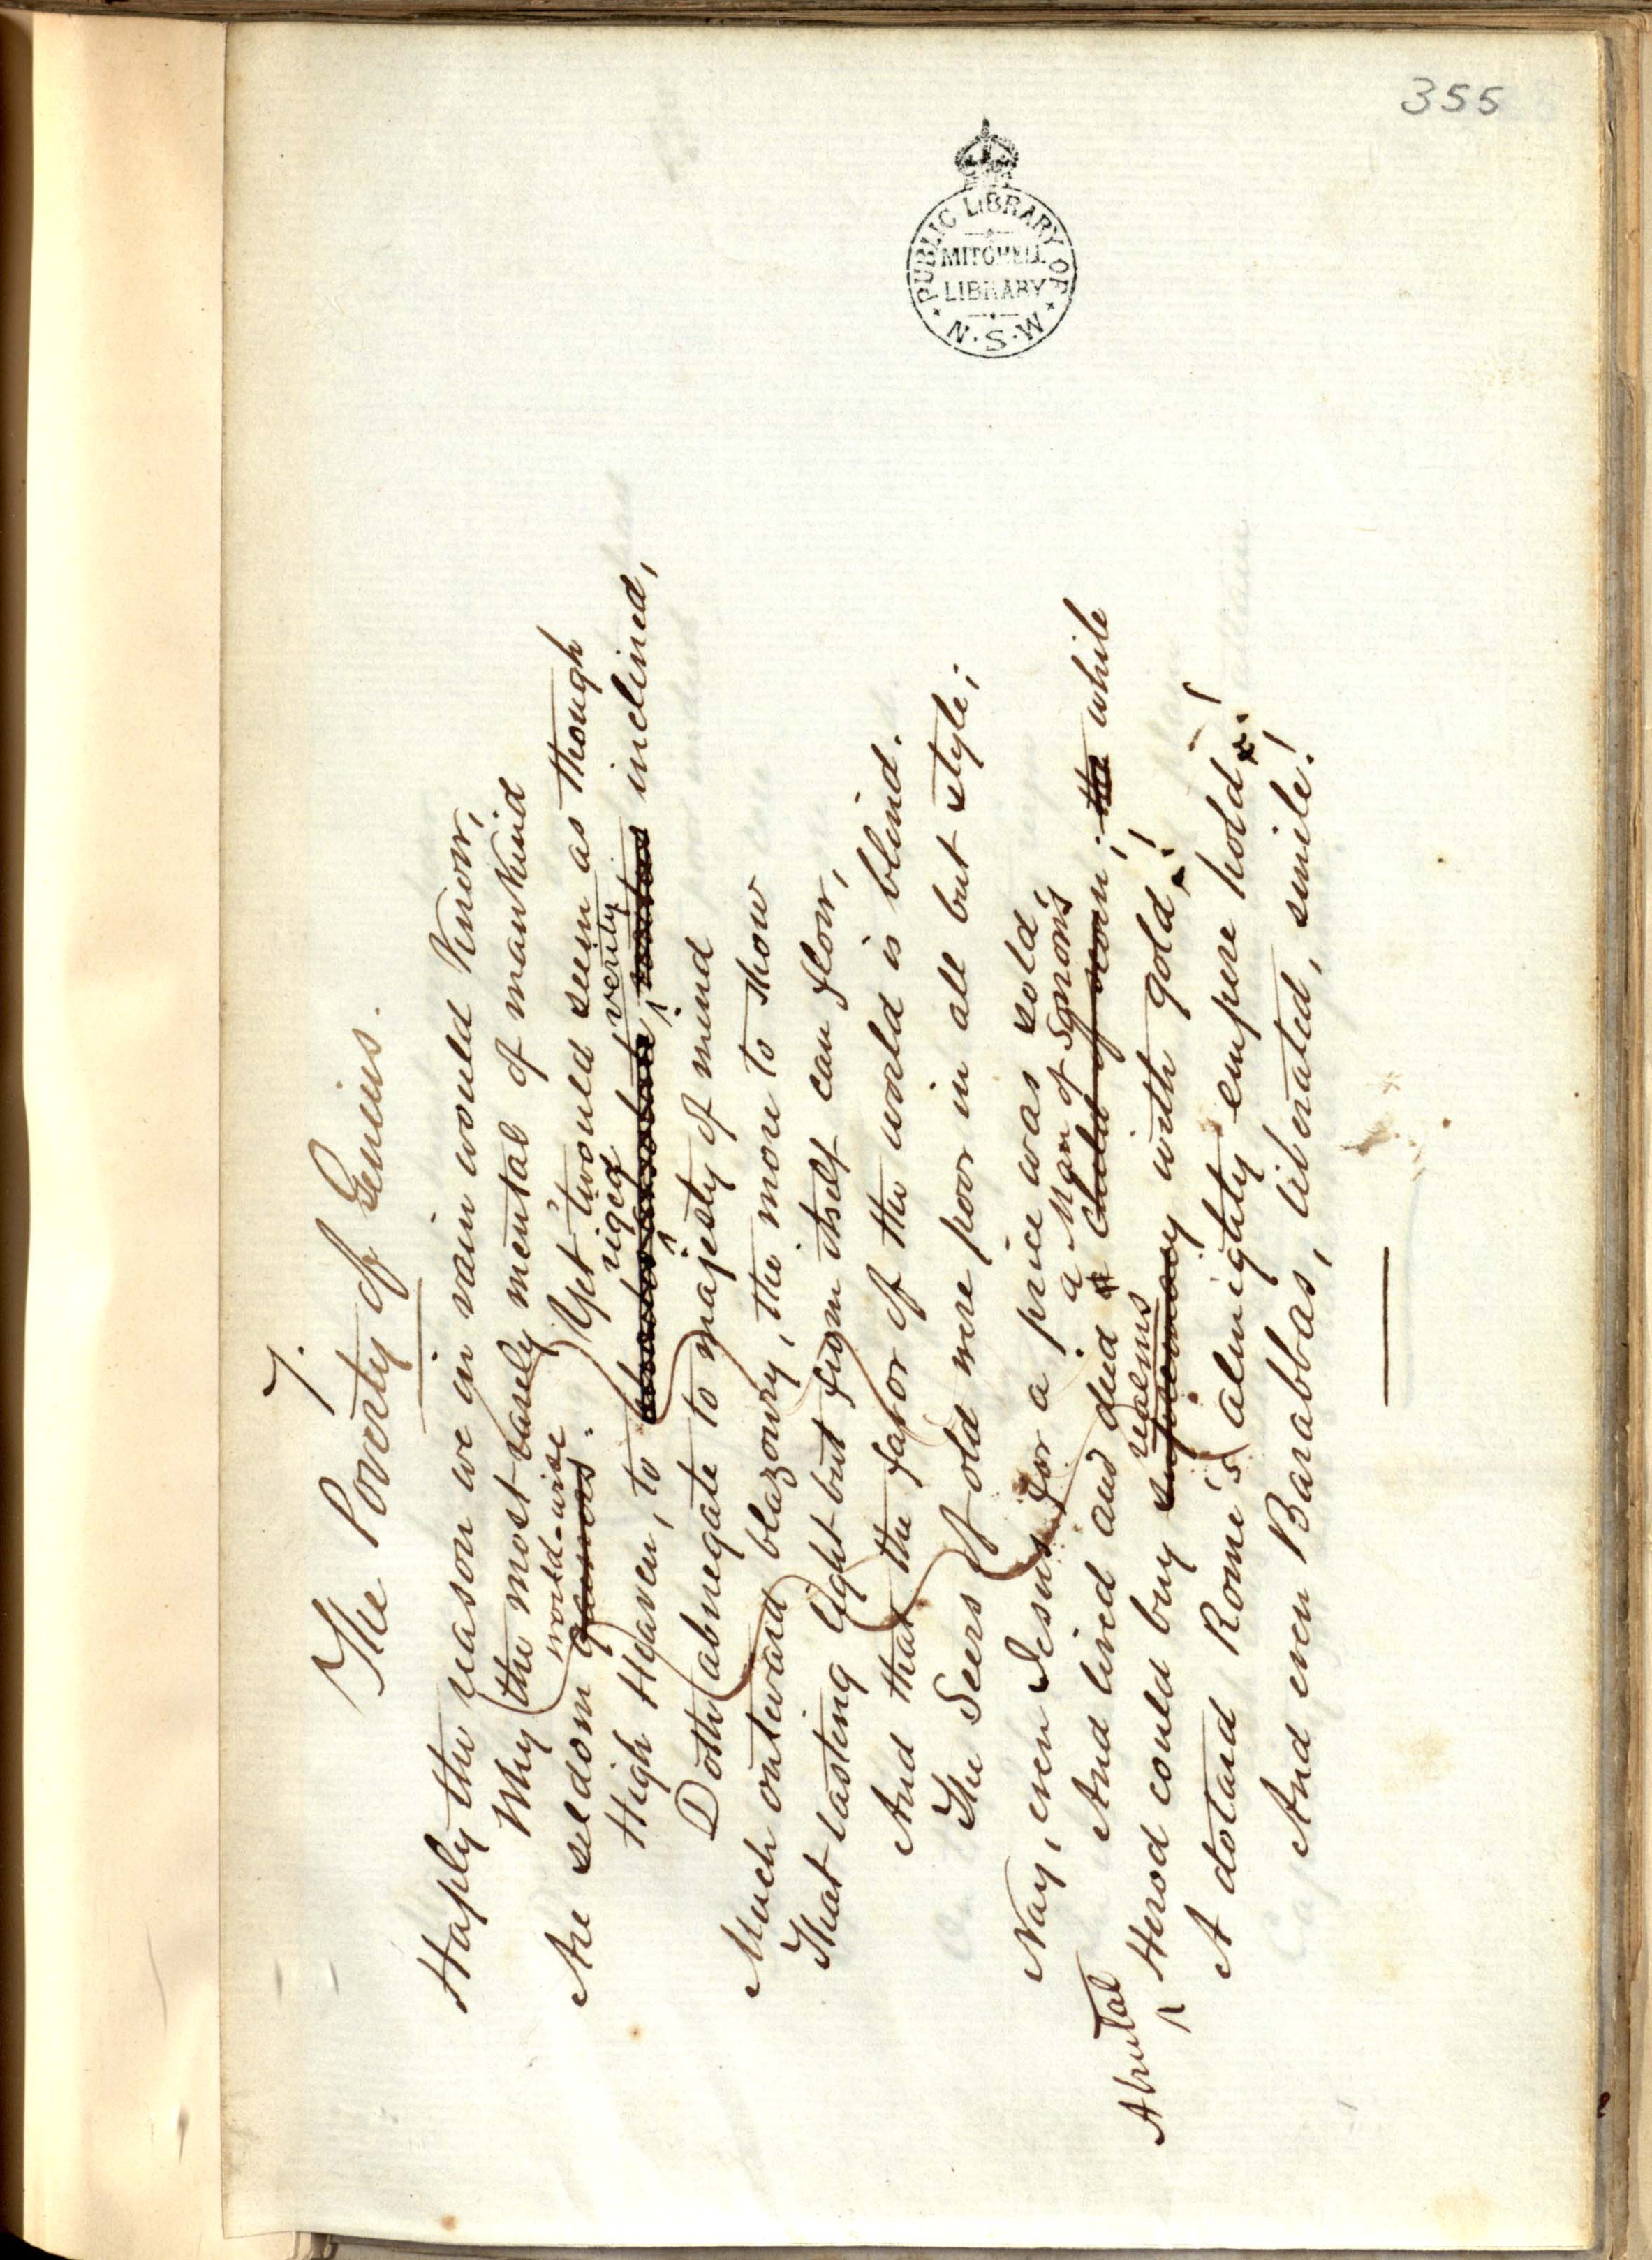 355
PUBLIC LIBRARY OF
MITCHELL
LIBRARY
N.S.W
7.
The Poverty of Genius.
Haply the reason we in vain would know,
Why the most vasely mental of mankind
world-wise
Are seldom . Yet 'twould seem as though
riged verity
High Heaven, to inclined,
Doth abnegate to majesty of mind
Much outward blazonry, the more to show
That lasting light but from itself can flow,
And that the favor of the world is blind.
The Seers of old were poor in all but style;
Nay, even Jesus for a price was sold,
a Man of Sorrows
And lived and died a child of scorn; the while
A brutal realms
Herod could buy supremacy with gold!
A dotard Rome's almighty empire hold!
And even Barabbas, liberated, smile!